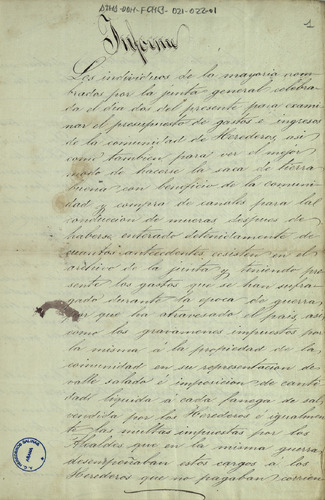 1
Informe
Los individuos de la mayoria nom-
brados por la junta general celebra-
da el dia dos del presente para exami-
nar el presupuesto de gastos é ingresos
de la comunidad de Herederos, asi
como tambien para ver el mejor
modo de hacerse la saca de tierra
buena con beneficio de la comuni-
dad y compra de canales para la
conduccion de mueras despues de
haberse enterado detenidamente de
cuantos antecedentes ecsisten en el
archivo de la junta y teniendo pre-
sente los gastos que se han sufra-
gado durante la epoca de guerra
por que ha atravesado el pais, asi
como los gravamenes impuestos por
la misma á la propiedad de la
comunidad en su representacion de
valle salado é imposicion de canti-
dad liquida á cada fanega de sal,
vendida por los Herederos é igualmen-
te las multas impuestas por los
Alcaldes que en la misma guerra
desempeñaban estos cargos a los
Herederos que no pagaban corrien